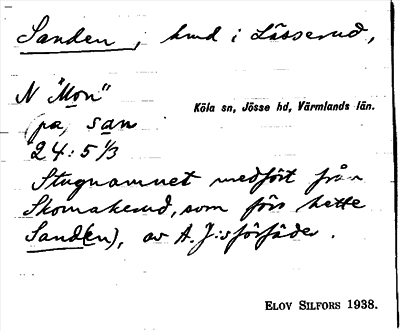 Sanden, hmd i Lässerud,
N "Mon"
Köla sn, Jösse hd, Värmlands län.
(på) san
24:5 1/3
Stugnamnet medfört från
Skomakerud, som förr hette
Sand(en), av A. J:s förfäder.
ELOV SILFORS 1938.